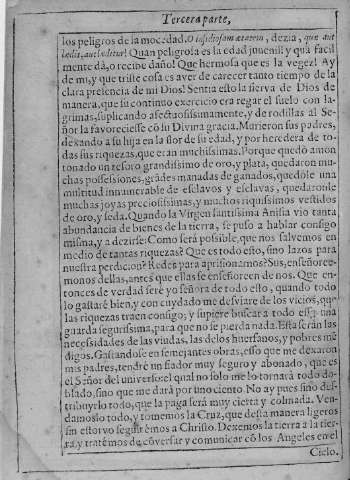 Tercera parte,
los peligros de la mocedad. O insidiosam ætatem, dezia, que aut
lædit, aut læditur! Quan peligrosa es la edad juuenil! y quã facil
mente dà, o recibe daño! Que hermosa que es la vegez! Ay
de mi, y que triste cosa es auer de carecer tanto tiempo de la
clara presencia de mi Dios! Sentia esto la sierva de Dios de
manera, que su continuo exercicio era regar el suelo con la-
grimas, suplicando afectuosissimamente, y de rodillas al Se-
ñor la fauoreciesse cõ su Diuina gracia. Murieron sus padres,
dexando a su hija en la flor de su edad, y por heredera de to-
das sus riquezas, que eran muchissimas. Porque quedò amon
tonado vn tesoro grandissimo de oro, y plata, quedaron mu-
chas possessiones, grãdes manadas de ganados, quedòle vna
multitud innumerable de esclauos y esclauas, quedaronle
muchas joyas preciosissimas, y muchos riquissimos vestidos
de oro, y seda. Quando la Virgen santissima Anisia vio tanta
abundancia de bienes de la tierra, se puso a hablar consigo
misma, y a dezirse: Como serà possible, que nos saluemos en
medio de tantas riquezas? Que es todo esto, sino lazos para
nuestra perdicion? Redes para aprisionarnos? Sus, enseñoree-
monos dellas, antes que ellas se enseñoreen de nos. Que en-
tonces de verdad serè yo señora de todo esto, quando todo
lo gastarè bien, y con cuydado me desviare de los vicios, que
las riquezas traen consigo; y supiere buscar a todo esso vna
guarda segurissima, para que no se pierda nada. Esta seràn las
necessidades de las viudas, las de los huerfanos, y pobres mẽ
digos. Gastandose en semejantes obras, esso que me dexaron
mis padres, tendrè vn fiador muy seguro y abonado, que es
el Señor del vniverso: el qual no solo me lo tornarà todo do-
blado, sino que me darà por vno ciento. No ay pues sino dis-
tribuyrlo todo, que la paga serà muy cierta y colmada. Ven-
damoslo todo, y tomemos la Cruz, que desta manera ligeros
sin estorvo seguirẽmos a Christo. Dexemos la tierra a la tier-
ra, y tratẽmos de cõversar y comunicar cõ los Angeles en el
Cielo.